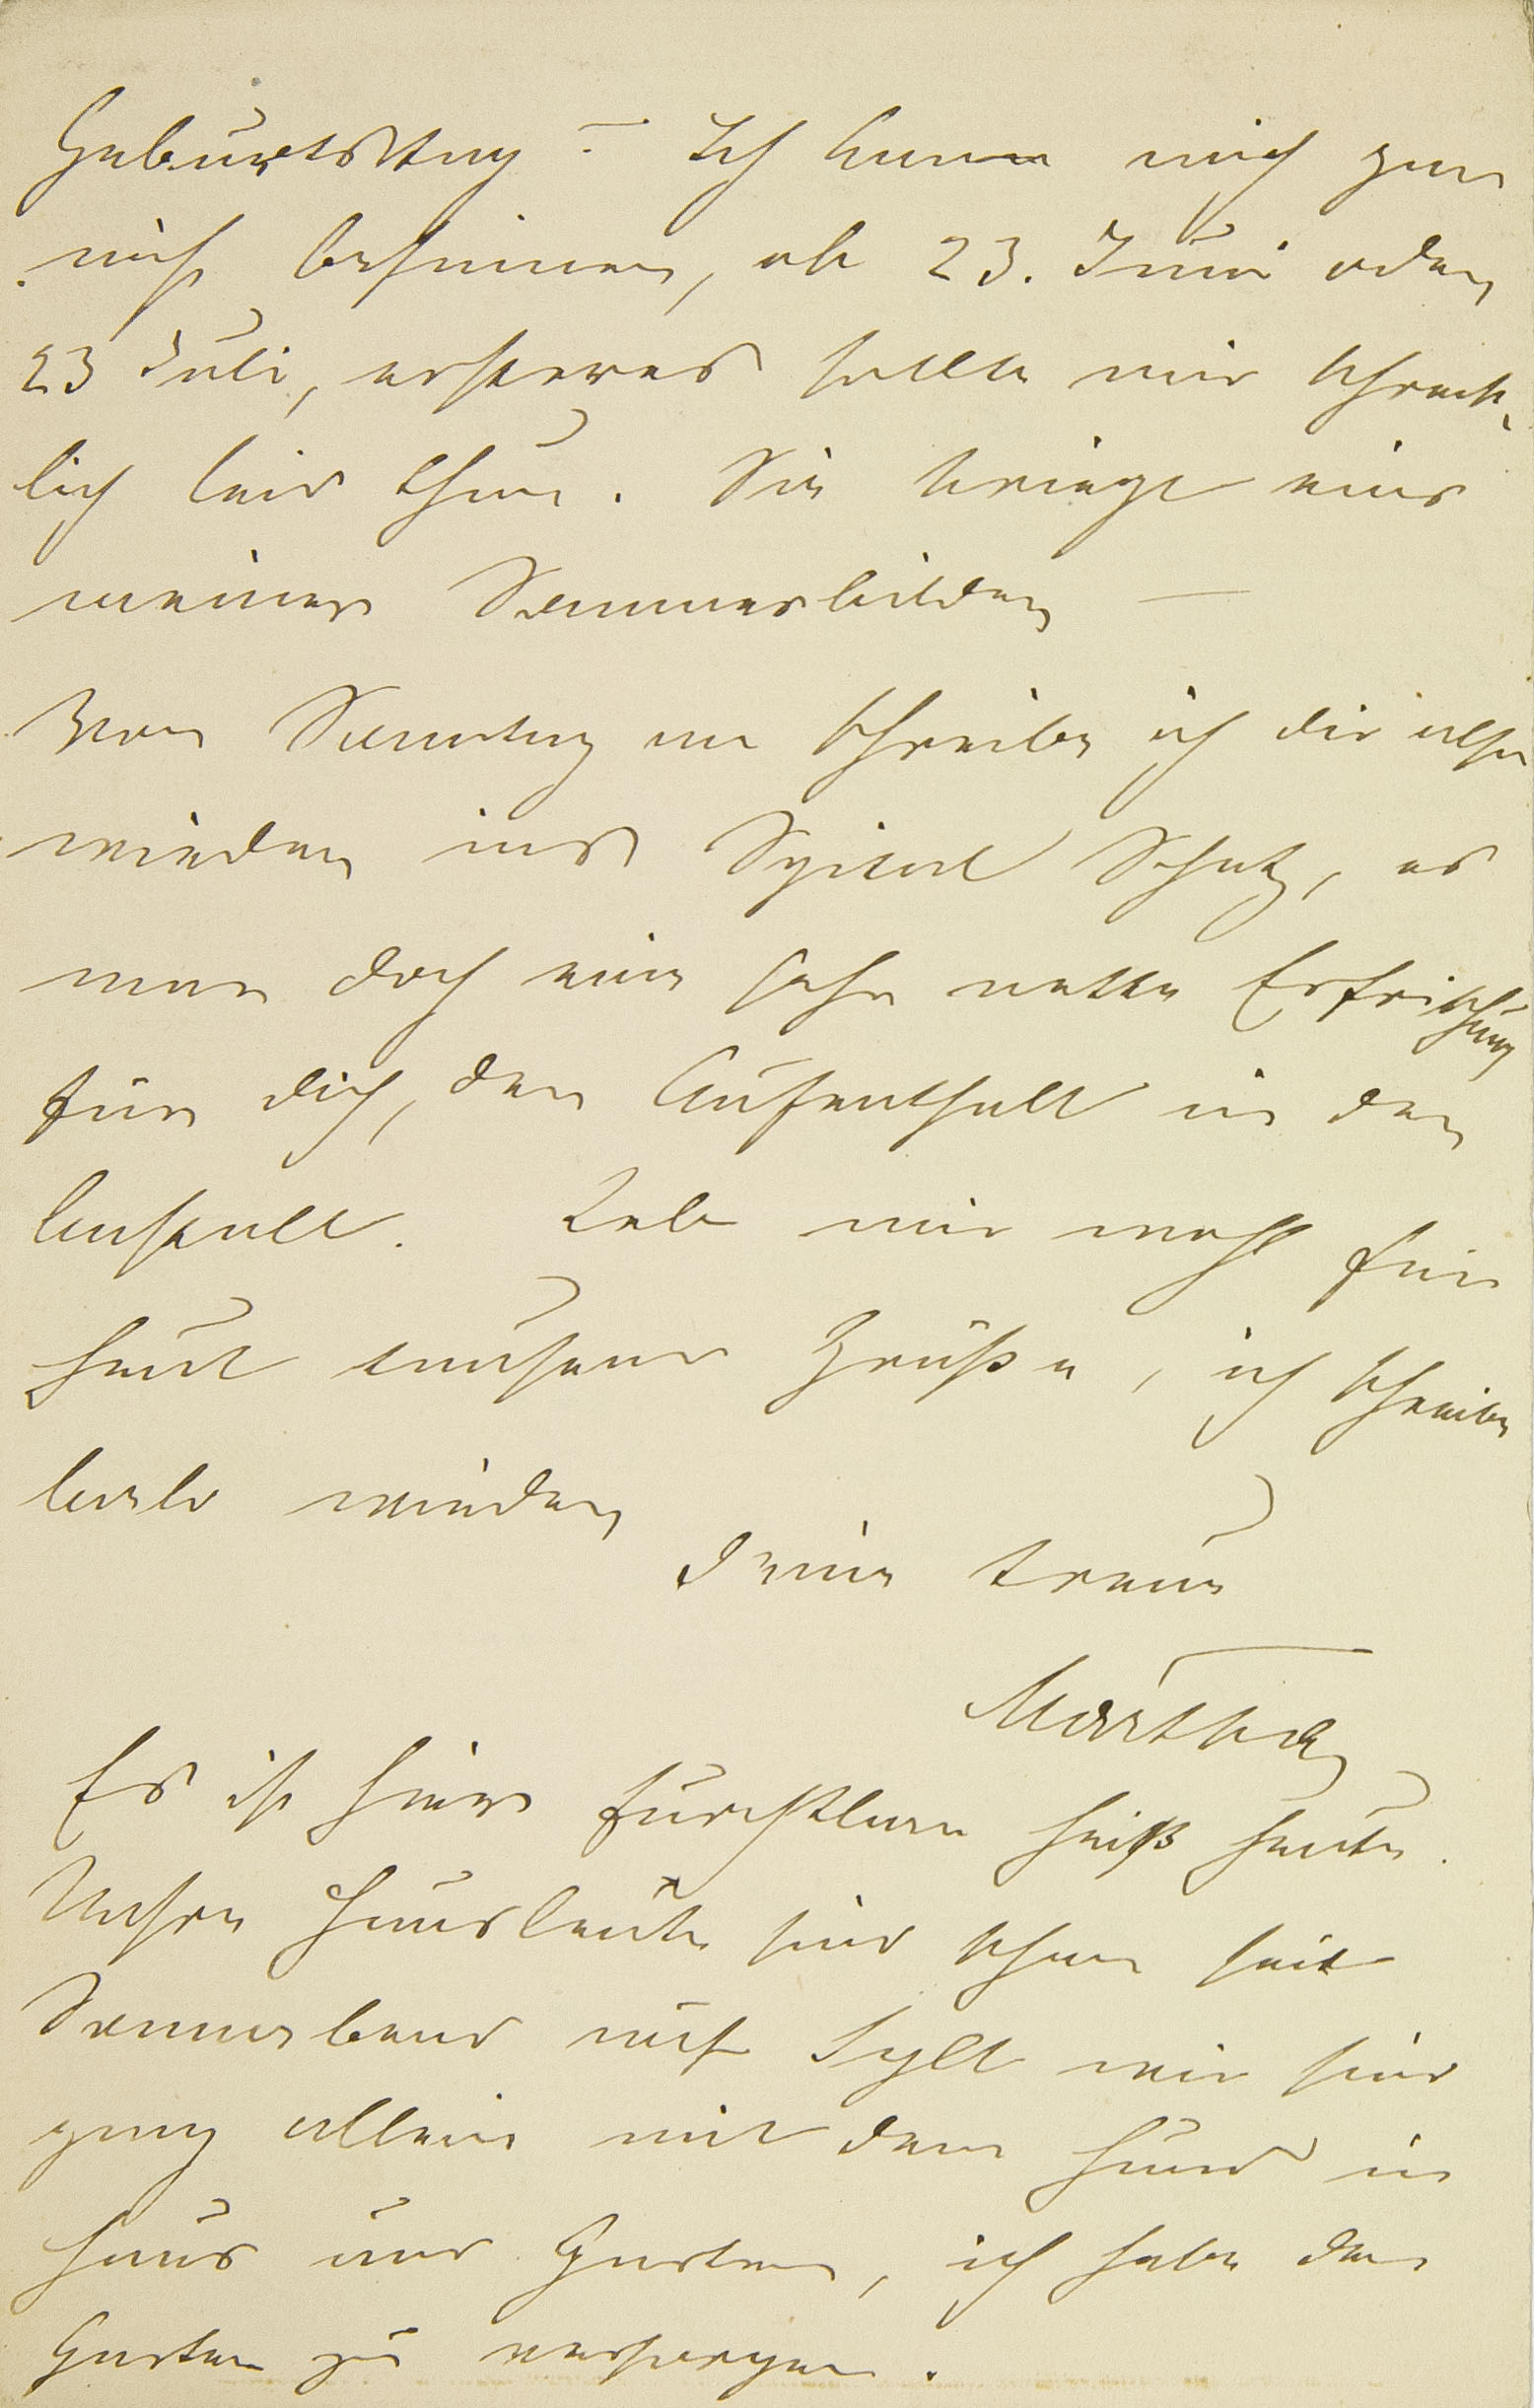 Geburtstag? – Ich kann mich gar
nicht besinnen, ob 23. Juni oder
23 Juli, ersteres sollte mir schreck-
lich leid thun. Sie kriegt eins
meiner Sommerbilder –
Von Sonntag an schreibe ich dir also
wieder ins Spital Schatz, es
war doch eine sehr nette Erfrischung
für dich, der Aufenthalt in der
Anstalt. Leb mir wohl für
heut tausend Grüße, ich schreibe
bald wieder
Deine treue
Martha
Es ist hier furchtbar heiß heute.
Unsre Hausleute sind schon seit
Sonnabend auf Sylt wir sind
ganz allein mit dem Hund in
Haus und Garten, ich habe den
Garten zu versorgen.